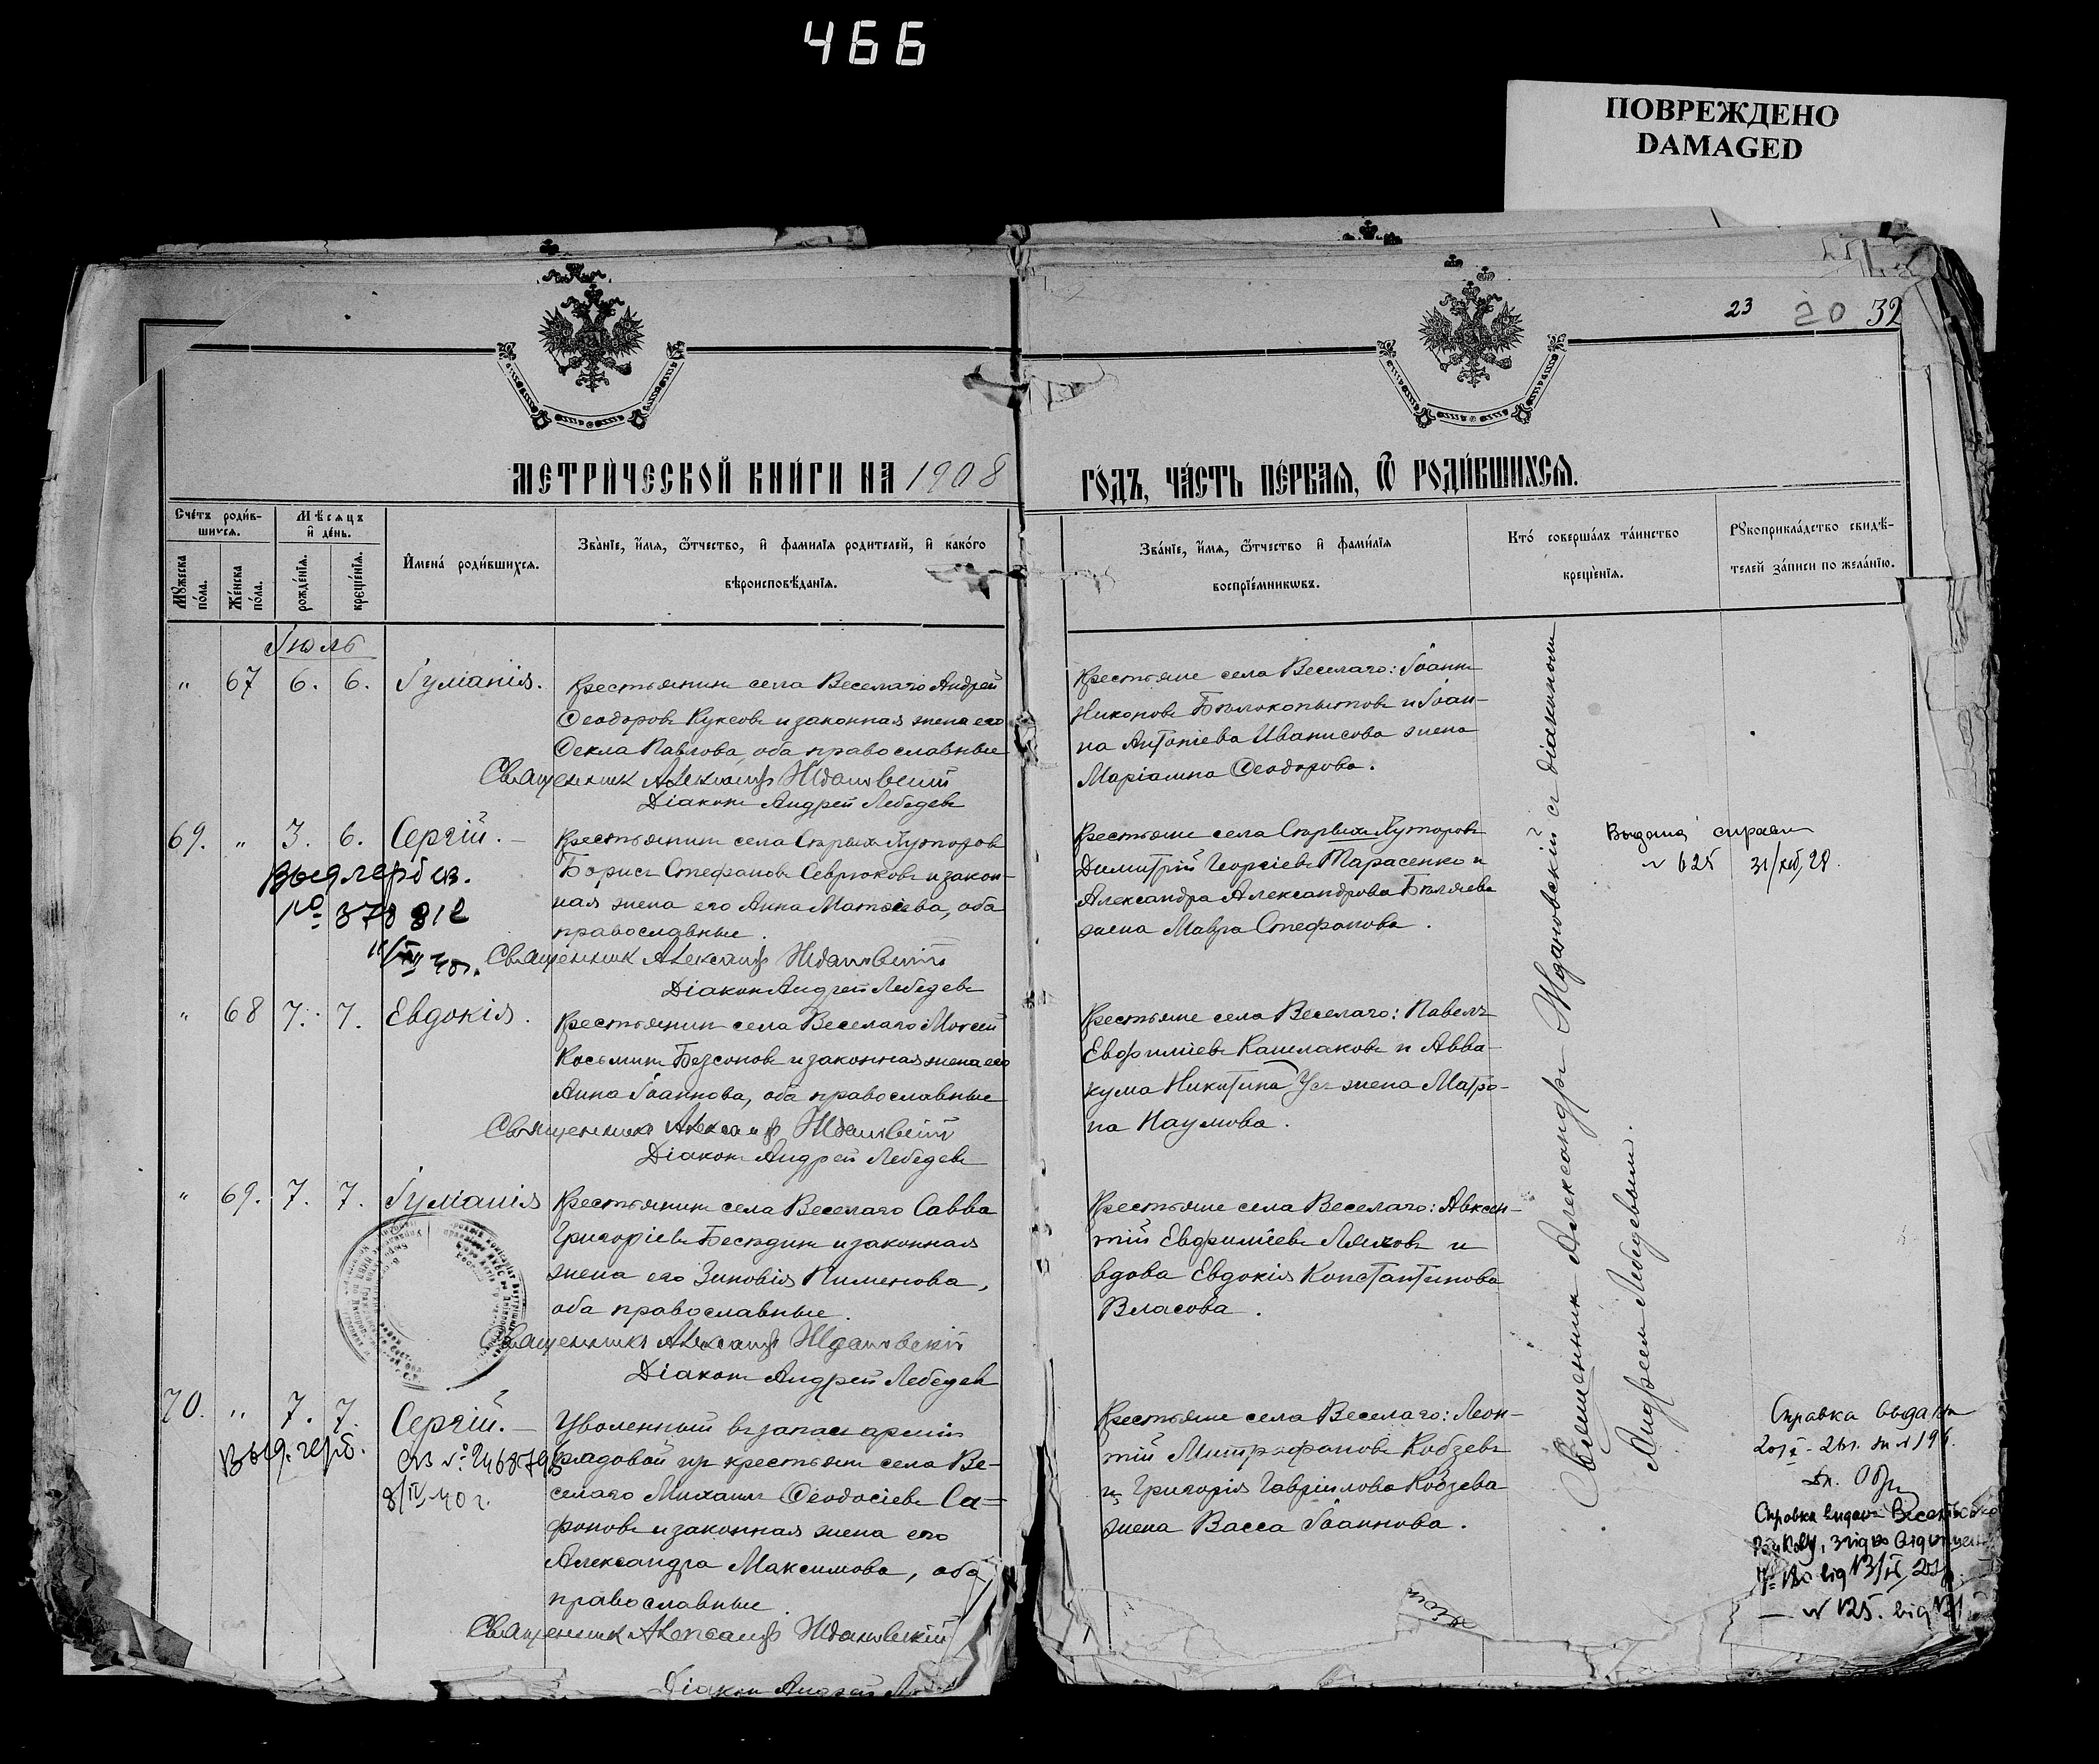 466
ПОВРЕЖДЕНО
DAMAGED
23 20 32
МЕТРИ́ЧЕСКОЙ КНИ́ГИ НА 1908
ГО́ДЪ, ЧА́СТЬ ПЕ́РВАѦ, Ѿ РОДИ́ВШИХСѦ.
Сче́тъ роди́в-
шихся.
Мѣ́сяцъ
и̂ де́нь.
Мꙋ́жеска по́ла.
Же́нска по́ла.
рожде́нїя.
креще́нїя.
И̂мена̀ роди́вшихся.
Зва́нїе, и́мя, ѻ҆́тчество, и̂ фами́лїя роди́телей, и̂ како́го
вѣроисповѣ́данїя.
Зва́нїе, и́мя, ѻ҆́тчество и̂ фами́лїя
воспрїе́мникѡвъ.
Кто̀ соверша́лъ та́инство
креще́нїя.
Рꙋкоприкла́дство свидѣ́-
телей за́писи по жела́нїю.
Іюль
„ 67 6. 6. Іуліанія.
Крестьянинъ села Веселаго Андрей
Ѳеодоровъ Куксовъ и законная жена его
Ѳекла Павлова, оба православные
Священникъ Александръ Ждановскій
Діаконъ Андрей Лебедевъ
Крестьяне села Веселаго: Іоаннъ
Никоновъ Бѣлокопытовъ и Іоан-
на Антоніева Иванисова жена
Маріамна Ѳеодорова.
69. „ 3. 6. Сергій.
Крестьянинъ села Старыхъ Хуторовъ
Борисъ Стефановъ Севрюковъ и закон-
ная жена его Анна Матѳіева, оба
православные.
Священникъ Александръ Ждановскій
Діаконъ Андрей Лебедевъ
№ 378 812
40 г.
Крестьяне села Старыхъ Хуторовъ
Димитрій Георгіевъ Тарасенко и
Александра Александрова Бѣляева
жена Мавра Стефанова.
№ 625
„ 68 7. 7. Евдокія.
Крестьянинъ села Веселаго Моисей
Косьминъ Безсоновъ и законная жена его
Анна Іоаннова, оба православные
Священникъ Александръ Ждановскій
Діаконъ Андрей Лебедевъ
Крестьяне села Веселаго: Павелъ
Евфиміевъ Кашлаковъ и Авва-
кума Никитина Ус жена Матро-
на Наумова.
„ 69. 7. 7. Іуліанія
Крестьянинъ села Веселаго Савва
Григоріевъ Бесѣдинъ и законная
жена его Зиновія Пименова,
оба православные.
Священникъ Александръ Ждановскій
Діаконъ Андрей Лебедевъ
Крестьяне села Веселаго: Авксен-
тій Евфиміевъ Ляховъ и
вдова Евдокія Константинова
Власова.
70. „ 7. 7. Сергій.
Выд. герб.
8/IV 40 г.
Уволенный въ запасъ арміи
рядовой изъ крестьянъ села Ве-
селаго Михаилъ Ѳеодосіевъ Са-
фоновъ и законная жена его
Александра Максимова, оба
православные.
Священникъ Александръ Ждановскій
Діаконъ Андрей
Крестьяне села Веселаго: Леон-
тій Митрофановъ Кобзевъ
и Григорія Гавріилова Кобзева
жена Васса Іоаннова.
Священникъ Александръ Ждановскій съ діакономъ
Андреемъ Лебедевымъ.
Справка видана
№ 125. від